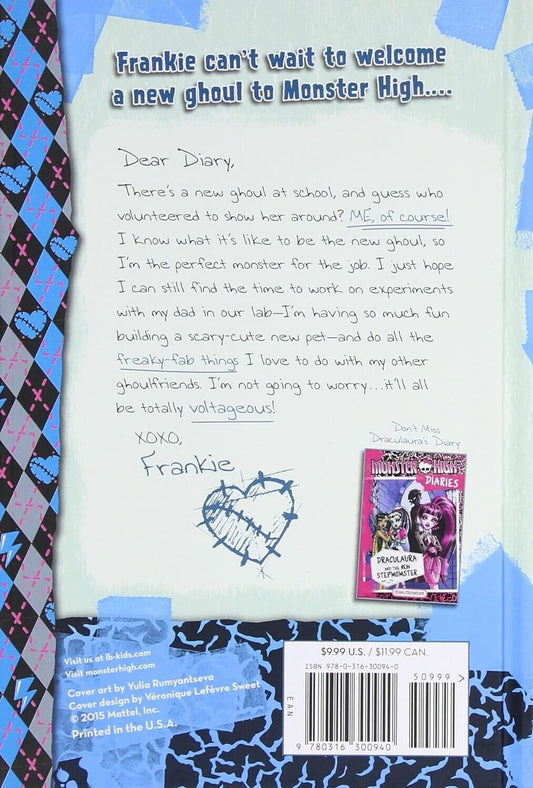 Frankie can't wait to welcome
a new ghoul to Monster High....
Dear Diary,
There's a new ghoul at school, and guess who
volunteered to show her around? ME, of course!
I know what it's like to be the new ghoul, so
I'm the perfect monster for the job. I just hope
I can still find the time to work on experiments
with my dad in our lab—I'm having so much fun
building a scary-cute new pet—and do all the
freaky-fab things I love to do with my other
ghoulfriends. I'm not going to worry...it'll all
be totally voltageous!
XOXO,
Frankie
Don't Miss
Draculaura's Diary
MONSTER HIGH
DIARIES
DRACULAURA
AND THE NEW
STEPMOMSTER
Visit us at lb-kids.com
Visit monsterhigh.com
Cover art by Yulia Rumyantseva
Cover design by Véronique Lefèvre Sweet
© 2015 Mattel, Inc.
Printed in the U.S.A.
$9.99 U.S. / $11.99 CAN.
ISBN 978-0-316-30094-0
50999>
EAN
9 780316 300940